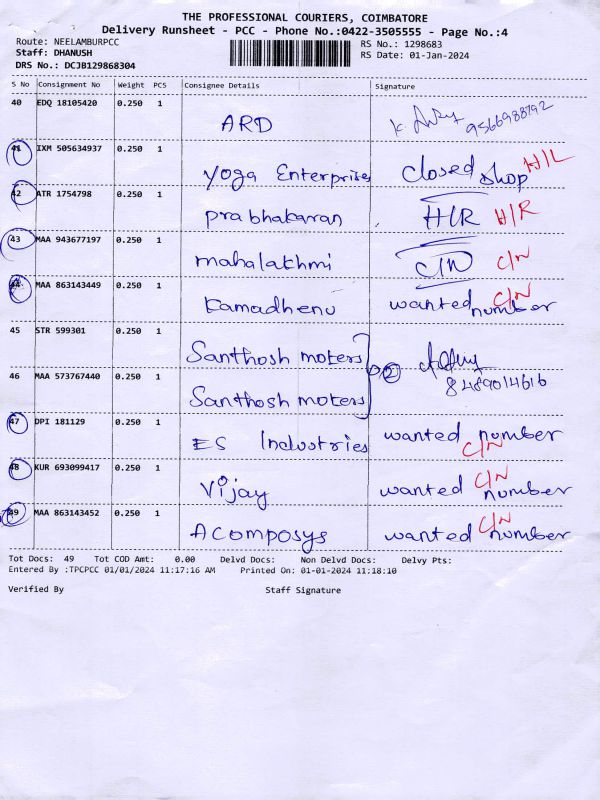 THE PROFESSIONAL COURIERS, COIMBATORE
Delivery Runsheet - PCC - Phone No.:0422-3505555 - Page No.:4
Route: NEELAMBURPCC RS No.: 1298683
Staff: DHANUSH RS Date: 01-Jan-2024
DRS No.: DCJB129868304
S No Consignment No Weight PCS Consignee Details Signature
40 EDQ 18105420 0.250 1 ARD 9566988792
41 IXM 505634937 0.250 1 Yoga Enterprises closed shop H/L
42 ATR 1754798 0.250 1 prabhakaran H/R H/R
43 MAA 943677197 0.250 1 mahalakhmi C/N C/N
44 MAA 863143449 0.250 1 Kamadhenu wanted number C/N
45 STR 599301 0.250 1 Santhosh moters 2
46 MAA 573767440 0.250 1 Santhosh moters 8489014616
47 DPI 181129 0.250 1 ES Industries wanted number C/N
48 KUR 693099417 0.250 1 Vijay wanted number C/N
49 MAA 863143452 0.250 1 Acomposys wanted number C/N
Tot Docs: 49 Tot COD Amt: 0.00 Delvd Docs: Non Delvd Docs: Delvy Pts:
Entered By :TPCPCC 01/01/2024 11:17:16 AM Printed On: 01-01-2024 11:18:10
Verified By Staff Signature